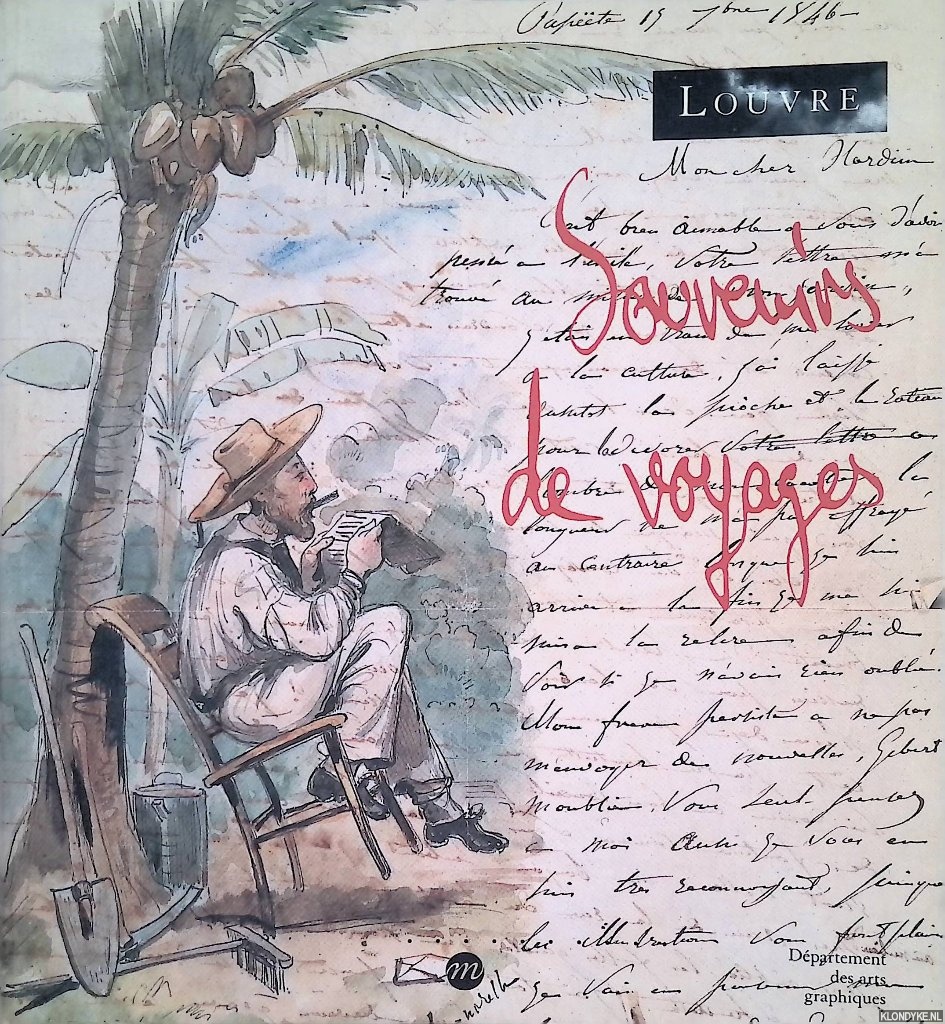 Papeëte 15 7bre 1846
LOUVRE
Mon cher
Souvenirs
de voyages
C'est bien aimable à Vous d'avoir
pensé à l'exilé, Votre lettre m'a
trouvé au
j'étais en train de me
à la culture, j'ai laissé
la pioche et le rateau
pour la dévorer Votre lettre
la
longueur ne m'a pas effrayé
au Contraire lorsque je suis
arrivé à la fin je me
à la relire afin de
Voir si je n'avais rien oublié.
Mon frère persiste à ne pas
m'envoyer de nouvelles,
m'oublie. Vous Seul pensez
à moi aussi je Vous en
suis très reconnaissant, puisque
les illustrations Vous font plaisir
je Vais en
Département
des arts
graphiques
m
KLONDYKE.NL